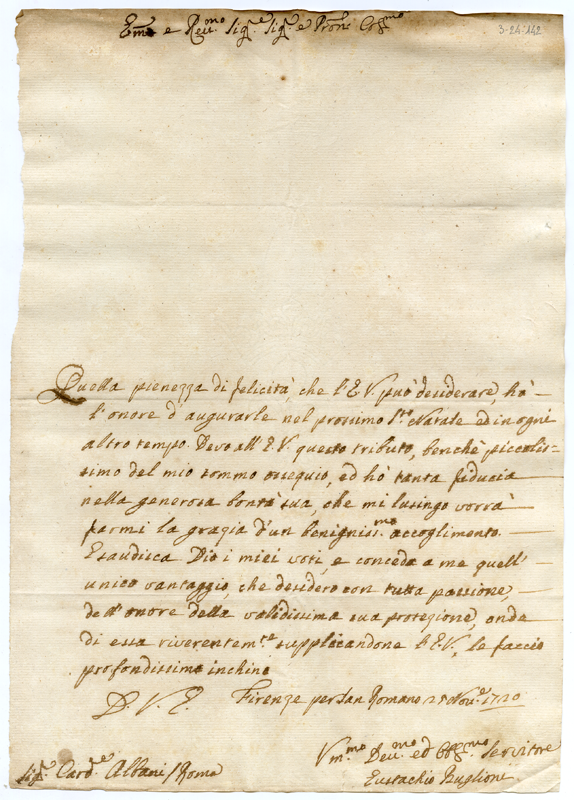 Em̃o e Reu.mo Sig.e Sig.e e Pron̄e Col.mo
3-24-142
Quella pienezza di felicità, che l'E.V. può desiderare, hò
l'onore d'augurarle nel prossimo S.to Natale ed in ogni
altro tempo. Devo all'E.V. questo tributo, benchè piccolis-
simo del mio sommo ossequio, ed hò tanta fiducia
nella generosa bontà sua, che mi lusingo vorrà
farmi la grazia d'un benigniss.mo accoglimento.
Esaudisca Dio i miei voti, e conceda a me quell'
unico vantaggio, che desidero con tutta passione,
dell'onore della validissima sua protezione, onde
di essa riverentem.te supplicandone l'E.V., le faccio
profondissimo inchino
D. V. E. Firenze per San Romano Nov.e 1720
Vm.mo Deu.mo ed Obl.mo Servitore
Sig.e Card.e Albani / Roma
Eustachio Buglioni